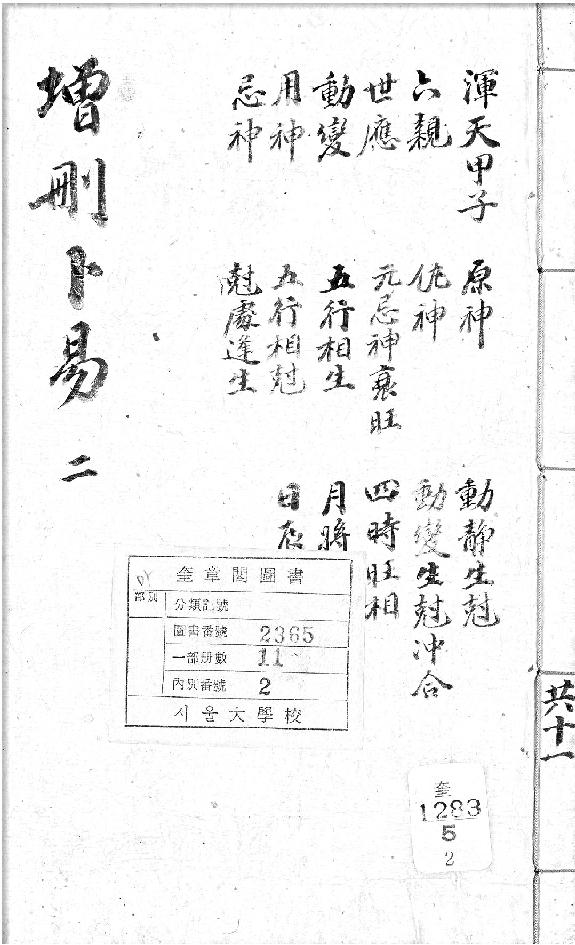 共十一
渾天甲子
六親
世應
動變
用神
忌神
原神
仇神
元忌神衰旺
五行相生
五行相尅
尅處逢生
動靜生尅
動變生尅冲合
四時旺相
月將
日辰
增刪卜易 二
奎章閣圖書
部別
分類記號
圖書番號 2365
一部册數 11
內別番號 2
서울大學校
奎
1283
5
2